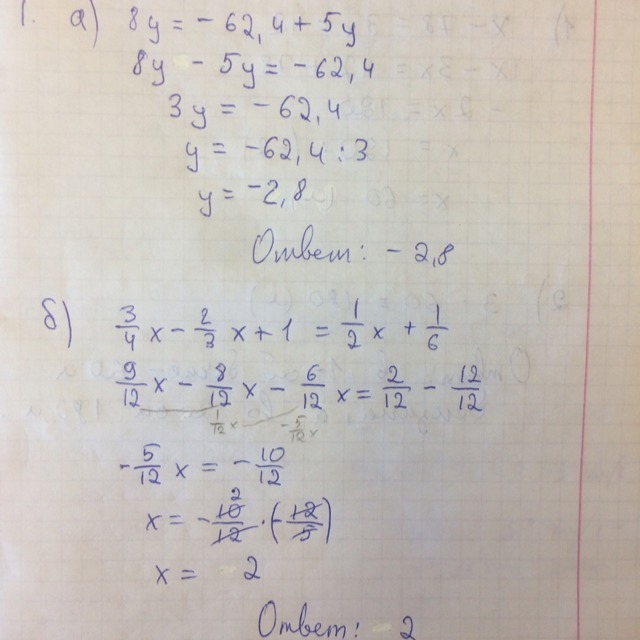 1. а) 8y = - 62,4 + 5y
8y - 5y = - 62,4
3y = - 62,4
y = - 62,4 : 3
y = - 2,8
Ответ: - 2,8
б) 3/4 x - 2/3 x + 1 = 1/2 x + 1/6
9/12 x - 8/12 x - 6/12 x = 2/12 - 12/12
1/12 x - 5/12 x
- 5/12 x = - 10/12
x = - 10/12 · (- 12/5) 2
x = 2
Ответ: 2